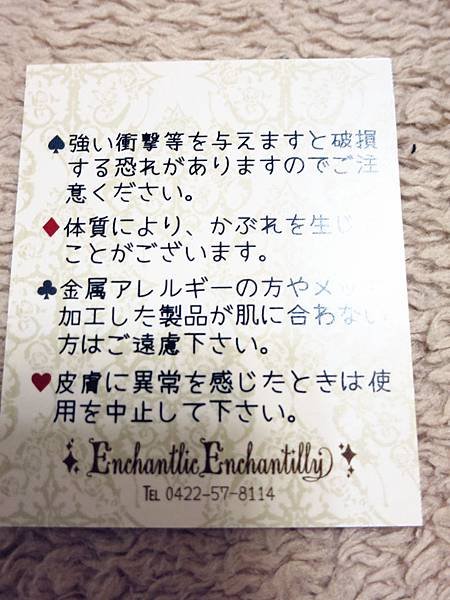 ♠強い衝撃等を与えますと破損
する恐れがありますのでご注
意ください。
♦体質により、かぶれを生じ
ことがございます。
♣金属アレルギーの方やメッ
加工した製品が肌に合わない
方はご遠慮下さい。
♥皮膚に異常を感じたときは使
用を中止して下さい。
Enchantlic Enchantilly
TEL 0422-57-8114